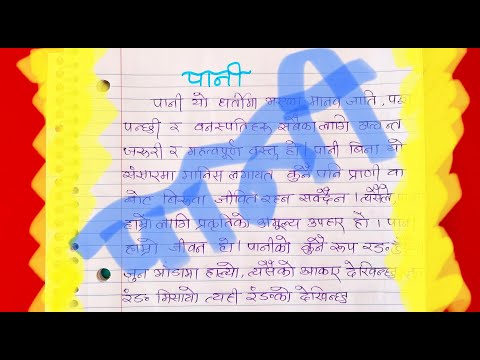 पानी
पानी यो धर्तीमा भएका मानव जाति, पशु
पन्छी र वनस्पतिहरू सबैका लागि अत्यन्त
जरुरी र महत्वपूर्ण वस्तु हो। पानी बिना यो
संसारमा मानिस लगायत कुनै पनि प्राणी वा
बोट बिरुवा जीवित रहन सक्दैन। त्यसैले
हाम्रो लागि प्रकृतिको अमूल्य उपहार हो। पानी
हाम्रो जीवन हो। पानीको कुनै रूप रङ
जुन भाडामा हाल्यो, त्यसैको आकार देखिन्छ
रङ मिसायो त्यही रङको देखिन्छ
पानी